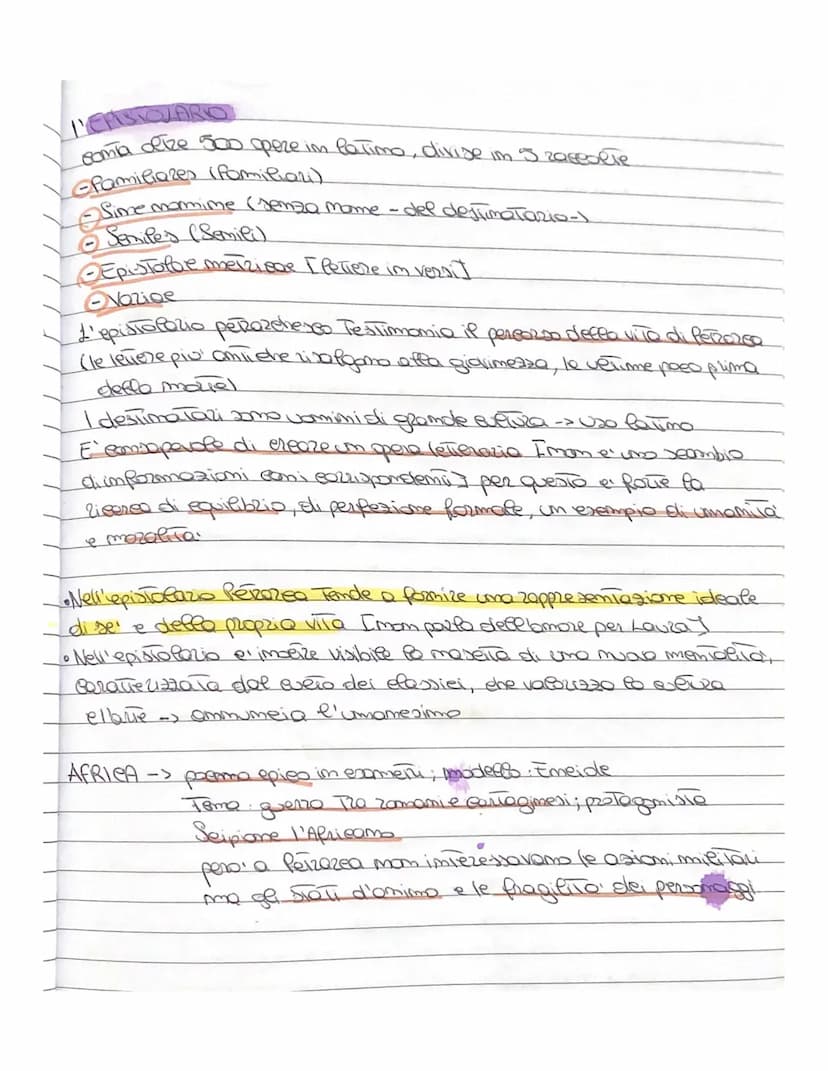 l'EPISTOLARIO
conta oltre 500 opere in latino, divise in 5 raccolte
- Familiares (familiari)
- Sine nomine (senza nome - del destinatario-)
- Seniles (Senili)
- Epistolae metricae [lettere in versi]
- Variae
L'epistolario petrarchesco testimonia il percorso della vita di Petrarca
(le lettere piu' antiche risalgono alla giovinezza, le ultime poco prima
della morte)
I destinatari sono uomini di grande cultura -> uso latino
E' consapevole di creare un opera letteraria [non e' uno scambio
di informazioni con i corrispondenti] per questo e' forte la
ricerca di equilibrio, di perfezione formale, un esempio di umanità
e moralità.
• Nell'epistolario Petrarca tende a fornire una rappresentazione ideale
di se' e della propria vita [non parla dell'amore per Laura]
• Nell'epistolario e' inoltre visibile la nascita di una nuova mentalità,
caratterizzata dal culto dei classici, che valorizza la cultura
-> annuncia l'umanesimo
AFRICA -> poema epico in esametri; modello: Eneide
Tema: guerra tra romani e cartaginesi; protagonista
Scipione l'Africano
pero' a Petrarca non interessavano le azioni militari
ma gli stati d'animo e le fragilità dei personaggi